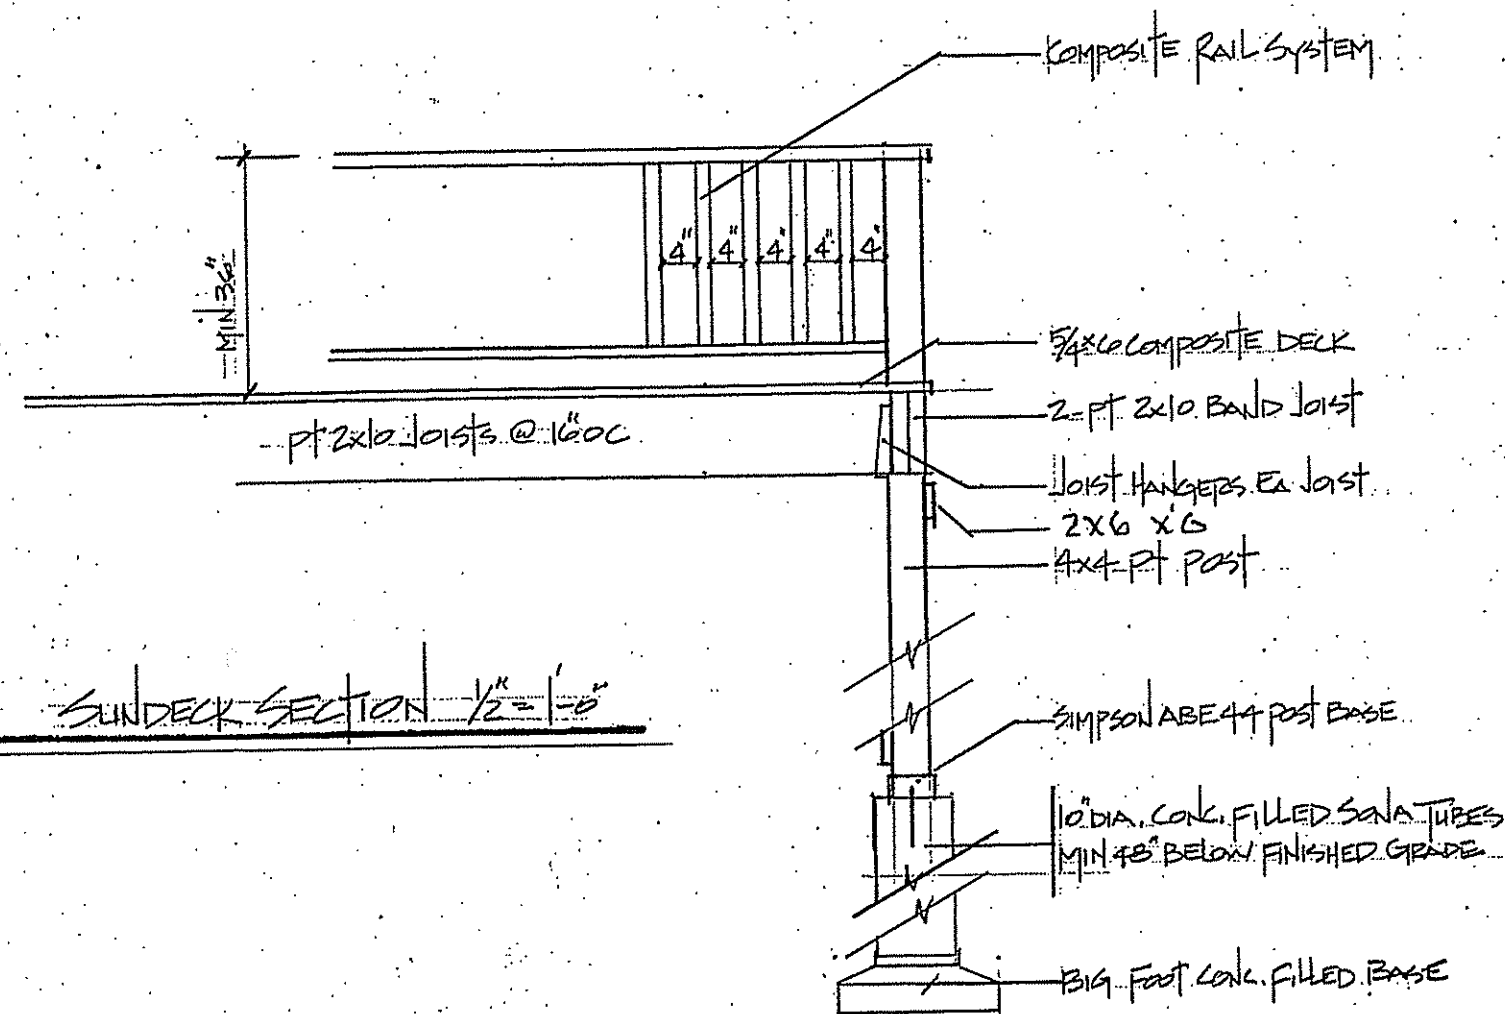 COMPOSITE RAIL SYSTEM
4" 4" 4" 4" 4"
MIN 36"
5/4x6 COMPOSITE DECK
2-PT 2x10 BAND JOIST
PT 2x10 JOISTS @ 16"OC
JOIST HANGERS EA JOIST
2x6
4x4 PT POST
SUNDECK SECTION 1/2"=1'-0"
SIMPSON ABE44 POST BASE
10" DIA. CONC. FILLED SONA TUBES
MIN 48" BELOW FINISHED GRADE
BIG FOOT CONC. FILLED BASE